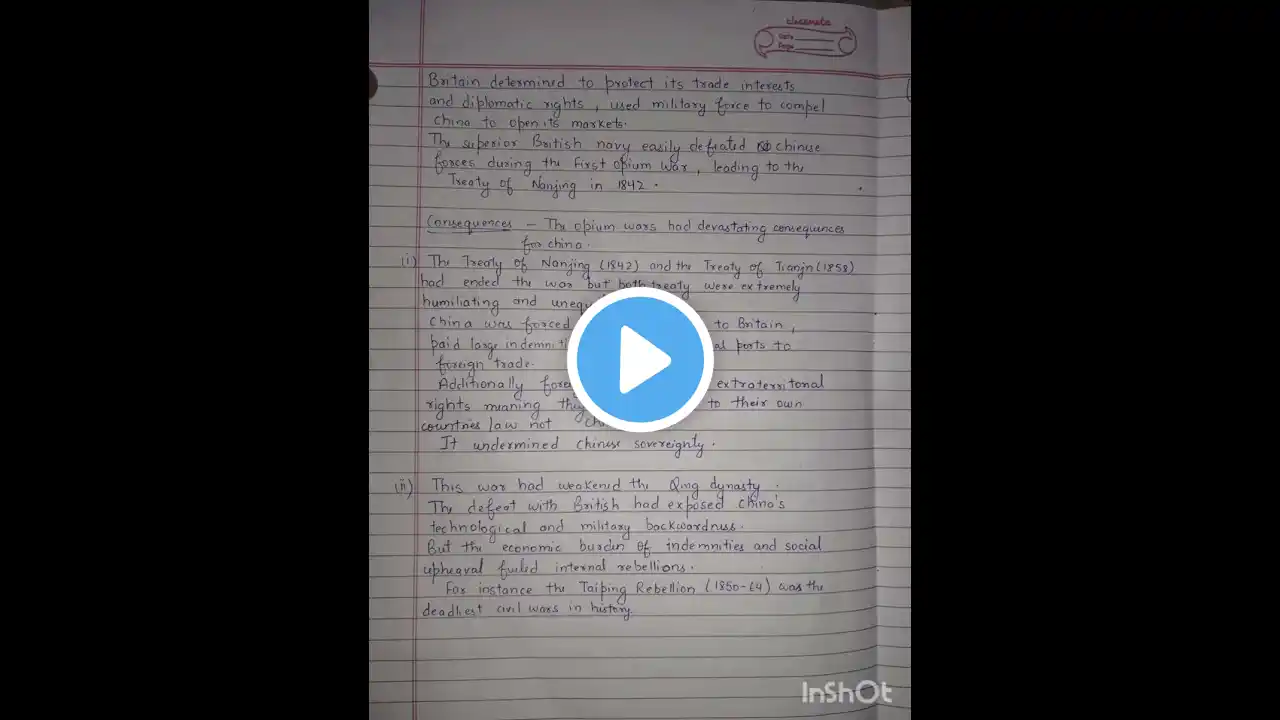 classmate
Date
Page
Britain determined to protect its trade interests
and diplomatic rights, used military force to compel
china to open its markets.
The superior British navy easily defeated chinese
forces during the First opium war, leading to the
Treaty of Nanjing in 1842.
Consequences – The opium wars had devastating consequences
for china.
(i) The Treaty of Nanjing (1842) and the Treaty of Tianjn (1858)
had ended the war but both treaty were extremely
humiliating and
china was forced to Britain,
paid large ports to
foreign trade.
Additionally extraterritonal
rights meaning they to their own
countries law not
It undermined chinese sovereignty.
(ii) This war had weakened the Qing dynasty.
The defeat with British had exposed china's
technological and military backwardness.
But the economic burden of indemnities and social
upheaval fueled internal rebellions.
For instance the Taiping Rebellion (1850-64) was the
deadliest civil wars in history.
InShOt